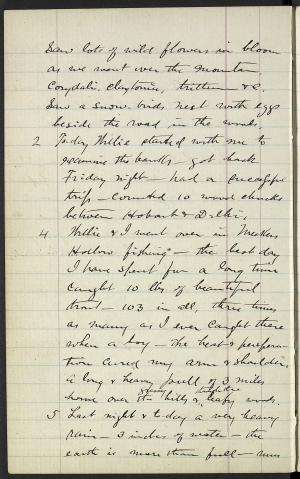 Saw lots of wild flowers in bloom
as we went over the mountain,
Corydalis, claytonia, trillium &c.
Saw a snow birds nest with eggs
beside the road in the woods.
2 Today Willie started with me to
examine the banks - got back
Friday night - had a successful
trip - Counted 10 wood chucks
between Hobart & Delhi.
4 Willie & I went over in Meekers
Hollow fishing - the best day
I have spent for a long time
caught 10 lbs of beautiful
trout - 103 in all, three times
as many as I ever caught there
when a boy - The heat & perspira-
tion cured my arm & shoulder,
a long & heavy pull of 3 miles
home over the hills & leafy woods.
5 Last night & today a very heavy
rain - 3 inches of water - the
earth is more than full - runs